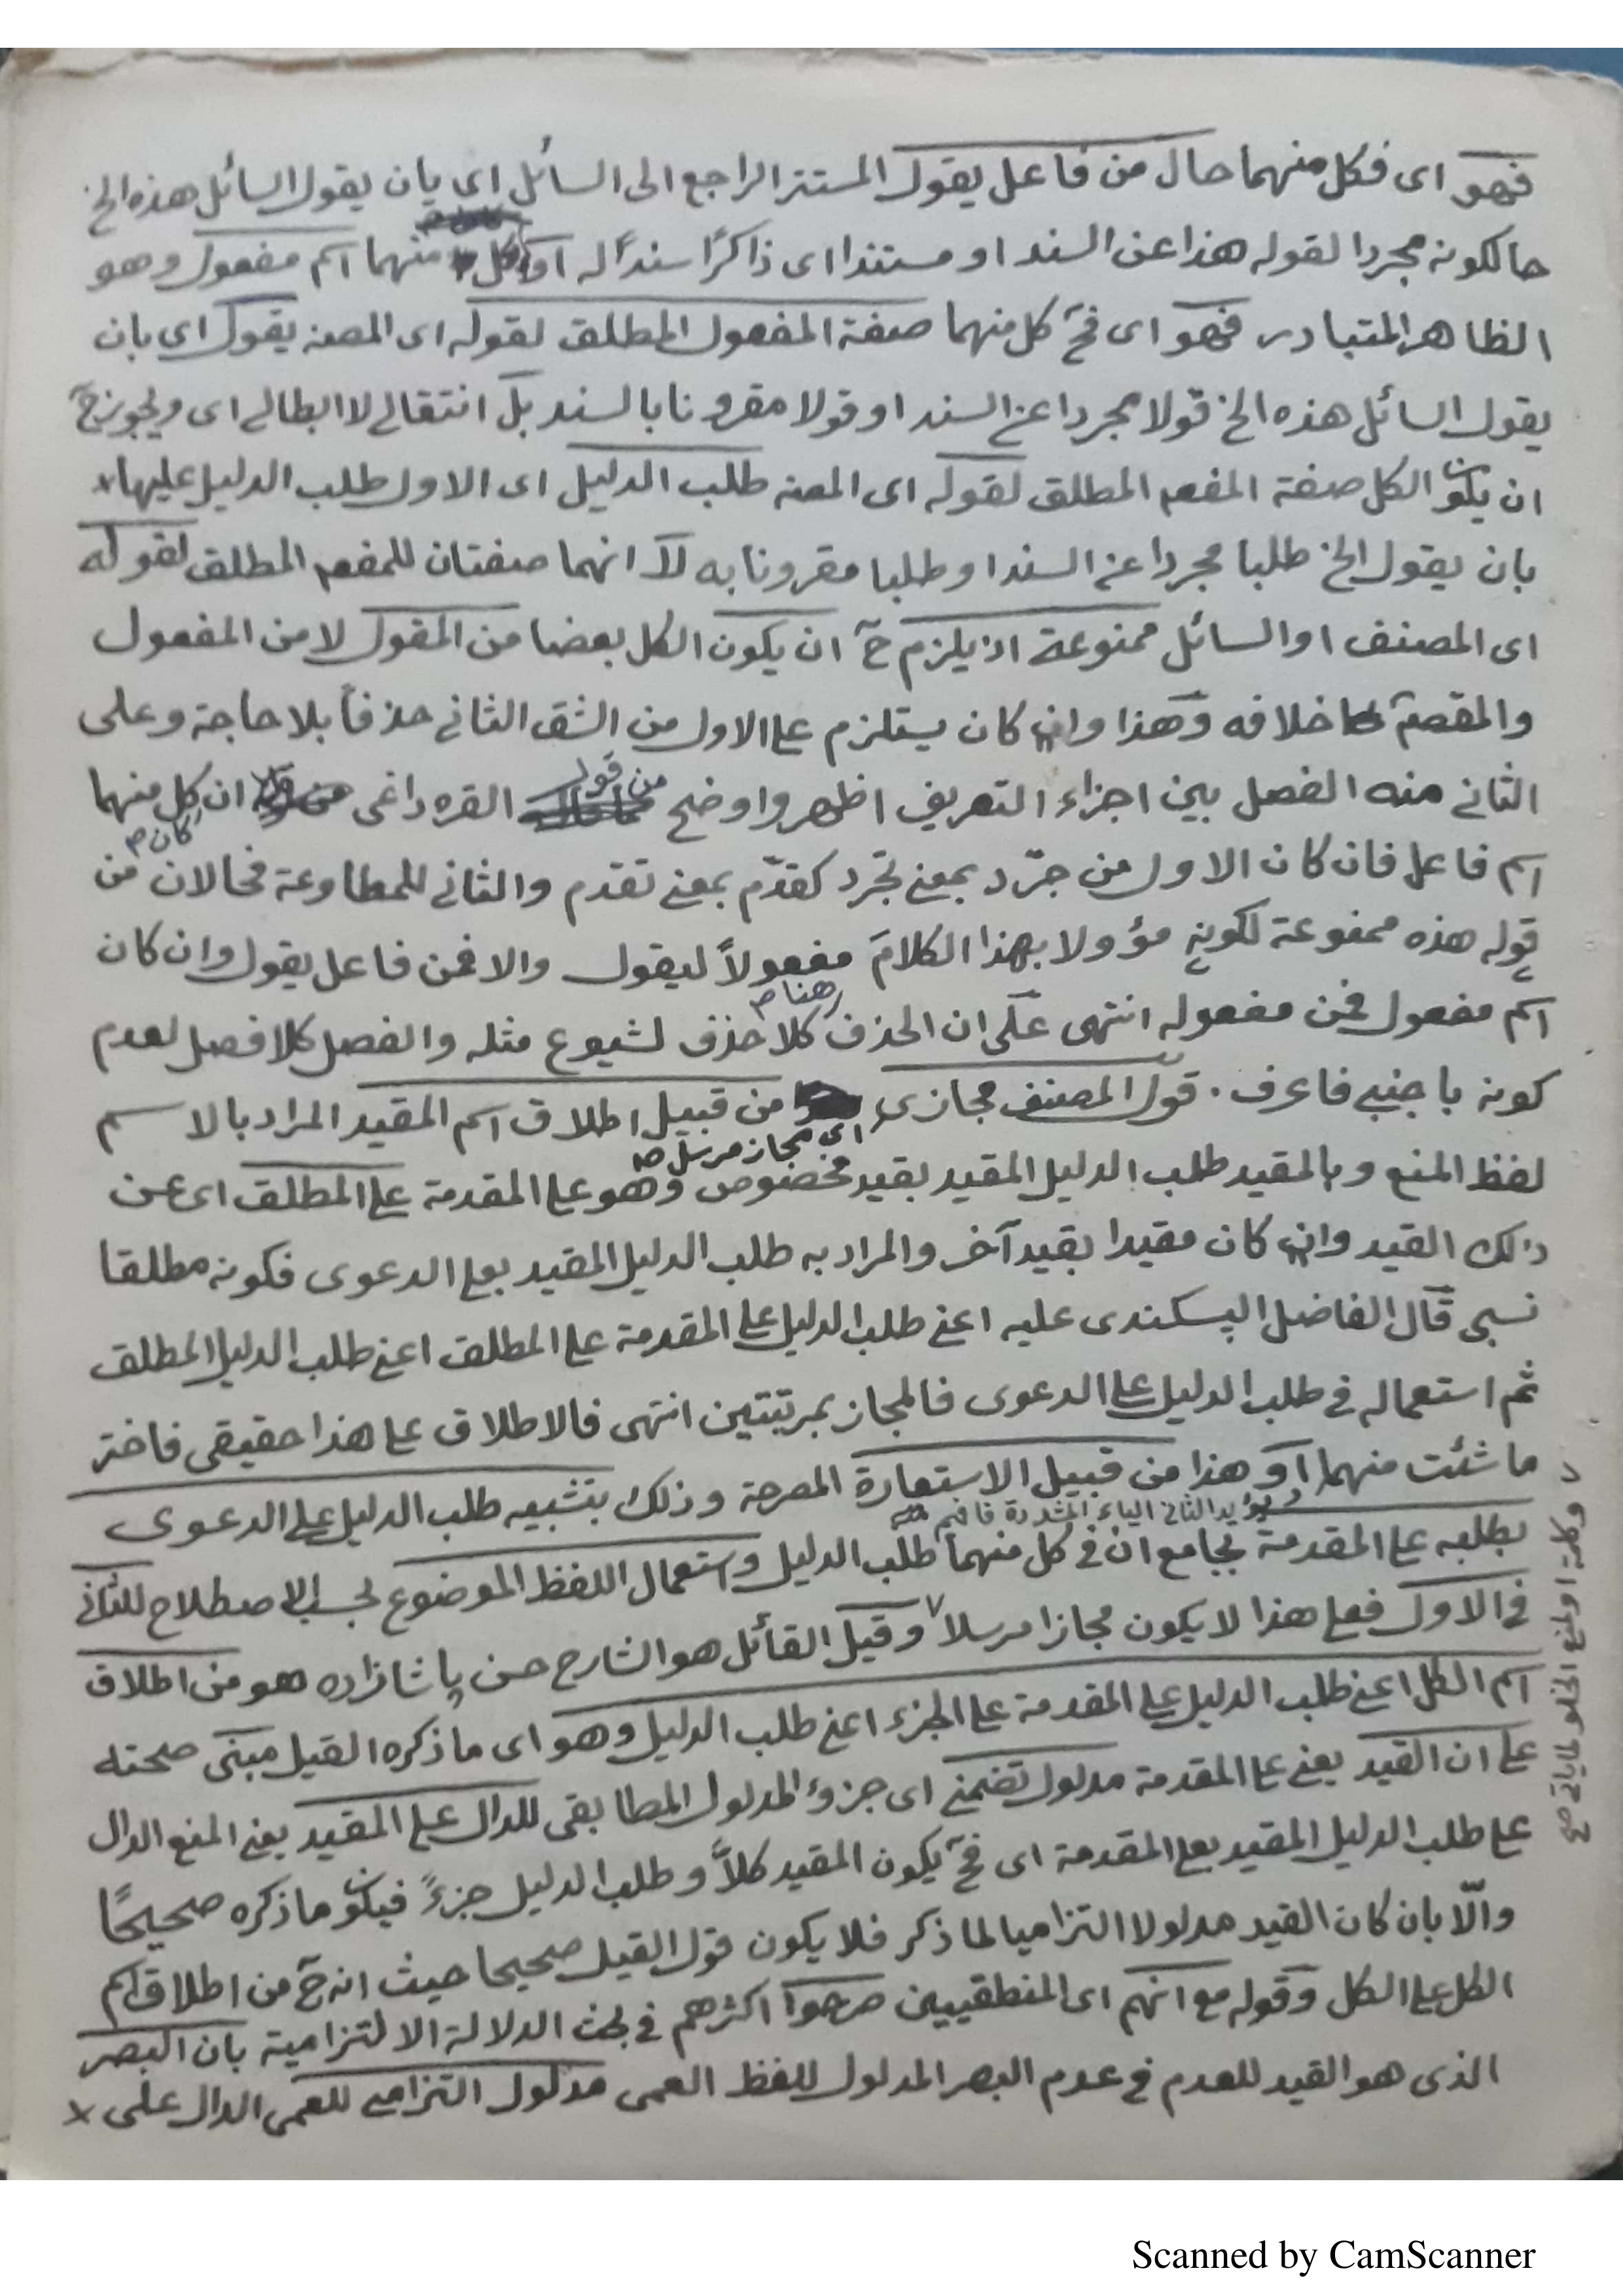 فهو اى فكل منهما حال من فاعل يقول المستتر الراجع الى السائل اى بان يقول السائل هذه الخ
حالكونه مجردا لقوله هذا عن السند او مستندا اى ذاكرًا سندًا له او كل منهما اسم مفعول وهو
الظاهر المتبادر فهو اى فح كل منهما صفة المفعول المطلق لقوله اى المصنه يقول اى بان
يقول السائل هذه الخ قولا مجردا عن السند او قولا مقرونا بالسند بل انتقالى لا ابطالى اى ويجوز ح
ان يكون الكل صفة المفعـ المطلق لقوله اى المصنه طلب الدليل اى الاول طلب الدليل عليها
بان يقول الخ طلبا مجردا عن السند او طلبا مقرونا به لا انهما صفتان للمفعـ المطلق لقوله
اى المصنف او السائل ممنوعة اذ يلزم ح ان يكون الكل بعضا من المقول لا من المفعول
والمقصـ خلافه وهذا وان كان يستلزم على الاول من الشق الثانى حذفا بلا حاجة وعلى
الثانى منه الفصل بين اجزاء التعريف اظهر واوضح من قول القره داغى ان كل منهما
اسم فاعل فان كان الاول من جرّد بمعنى تجرد كقدّم بمعنى تقدم والثانى للمطاوعة فحالان من
كان صح
قوله هذه ممنوعة لكونه مؤولا بهذا الكلام مفعولاً ليقول والا فمن فاعل يقول وان كان
اسم مفعول فمن مفعوله انتهى على ان الحذف هنا كلا حذف لشيوع مثله والفصل كلا فصل لعدم
كونه باجنبى فاعرف . قول المصنف مجازى من قبيل اطلاق اسم المقيد المراد بالاسم
اى مجاز مرسل صح
لفظ المنع وبالمقيد طلب الدليل المقيد بقيد مخصوص وهو على المقدمة على المطلق اى عن
ذلك القيد وان كان مقيدا بقيد آخر والمراد به طلب الدليل المقيد بعلى الدعوى فكونه مطلقا
نسبى قال الفاضل الپسكندى عليه اعنى طلب الدليل على المقدمة على المطلق اعنى طلب الدليل المطلق
ثم استعماله فى طلب الدليل على الدعوى فالمجاز بمرتبتين انتهى فالاطلاق على هذا حقيقى فاختر
ما شئت منهما او هذا من قبيل الاستعارة المصرحة وذلك بتشبيه طلب الدليل على الدعوى
ويؤيد الثانى الياء المشددة فافهم
بطلبه على المقدمة بجامع ان فى كل منهما طلب الدليل واستعمال اللفظ الموضوع بحسب الاصطلاح للثانى
فى الاول فعلى هذا لا يكون مجازا مرسلا وقيل القائل هو الشارح حسن پاشازاده هو من اطلاق
اسم الكل اعنى طلب الدليل على المقدمة على الجزء اعنى طلب الدليل وهو اى ما ذكره القيل مبنى صحته
على ان القيد يعنى على المقدمة مدلول تضمنى اى جزؤ المدلول المطابقى للدال على المقيد يعنى المنع الدال
على طلب الدليل المقيد بعلى المقدمة اى فح يكون المقيد كلاًّ وطلب الدليل جزءً فيكون ما ذكره صحيحًا
والّا بان كان القيد مدلولا التزاميا لما ذكر فلا يكون قول القيل صحيحا حيث انه ح من اطلاق اسم
الكل على الكل وقوله مع انهم اى المنطقيين صرحوا اكثرهم فى بحث الدلالة الالتزامية بان البصر
الذى هو القيد للعدم فى عدم البصر المدلول للفظ العمى مدلول التزامى للعمى الدال على
وكلمة او لمنع الخلو لما ياتى صح
Scanned by CamScanner